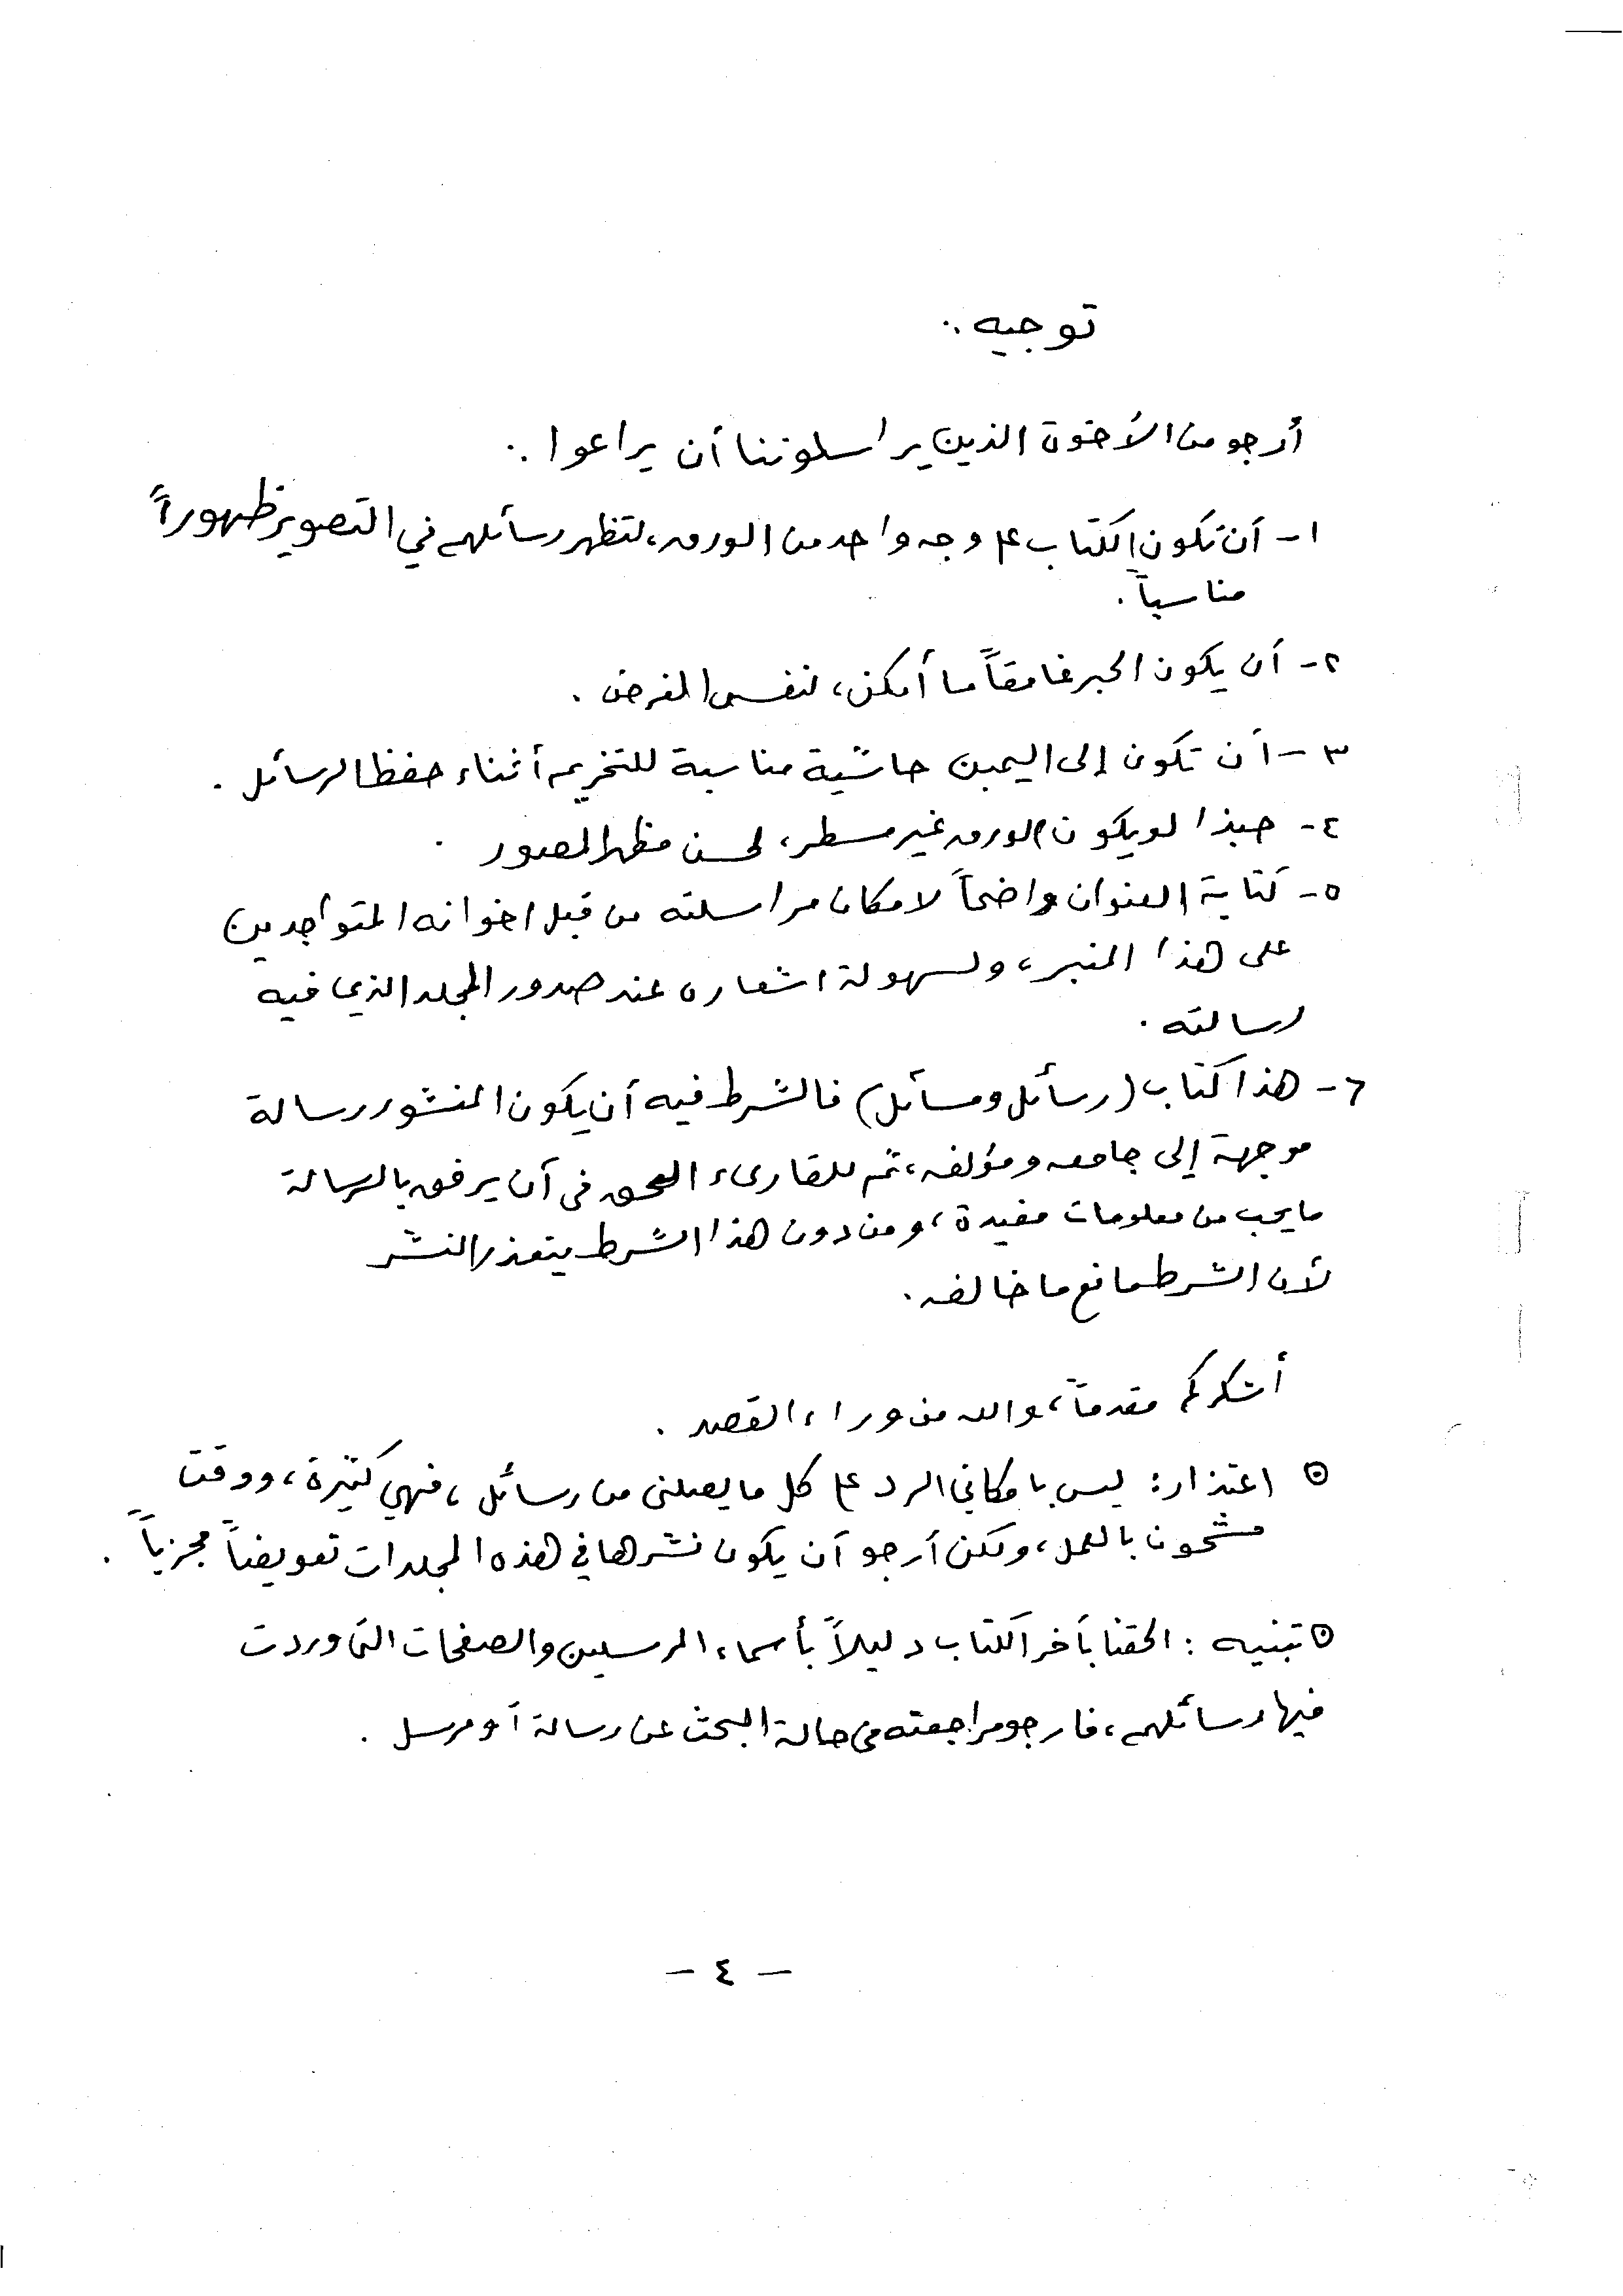 توجيه :
أرجو من الأخوة الذين يراسلوننا أن يراعوا :
١- أن تكون الكتاب على وجه واحد من الورق، لتظهر رسائلهم في التصوير ظهوراً
مناسباً .
٢- أن يكون الحبر غامقاً ما أمكن، لنفس الغرض .
٣- أن تكون إلى اليمين حاشية مناسبة للتخريم أثناء حفظ الرسائل .
٤- حبذا لو يكون الورق غير مسطر، لحسن مظهر المصور .
٥- كتابة العنوان واضحاً لامكان مراسلته من قبل اخوانه المتواجدين
على هذا المنبر، ولسهولة اشعاره عند صدور المجلد الذي فيه
رسالته .
٦- هذا كتاب (رسائل ومسائل) فالشرط فيه أن يكون المنشور رسالة
موجهة إلى جامعه ومؤلفه، ثم للقارىء الحق في أن يرفق بالرسالة
ما يحب من معلومات مفيدة، ومن دون هذا الشرط يتعذر النشر
لأن الشرط مانع ما خالفه .
أشكركم مقدماً، والله من وراء القصد .
٥ اعتذار : ليس بامكاني الرد على كل ما يصلني من رسائل، فهي كثيرة، ووقت
مشحون بالعمل، ولكن أرجو أن يكون نشرها في هذه المجلدات تعويضاً مجزياً .
٥ تنبيه : الحقنا بآخر الكتاب دليلاً بأسماء المرسلين والصفحات التي وردت
فيها رسائلهم، فارجو مراجعته في حالة البحث عن رسالة أو مرسل .
- ٤ -